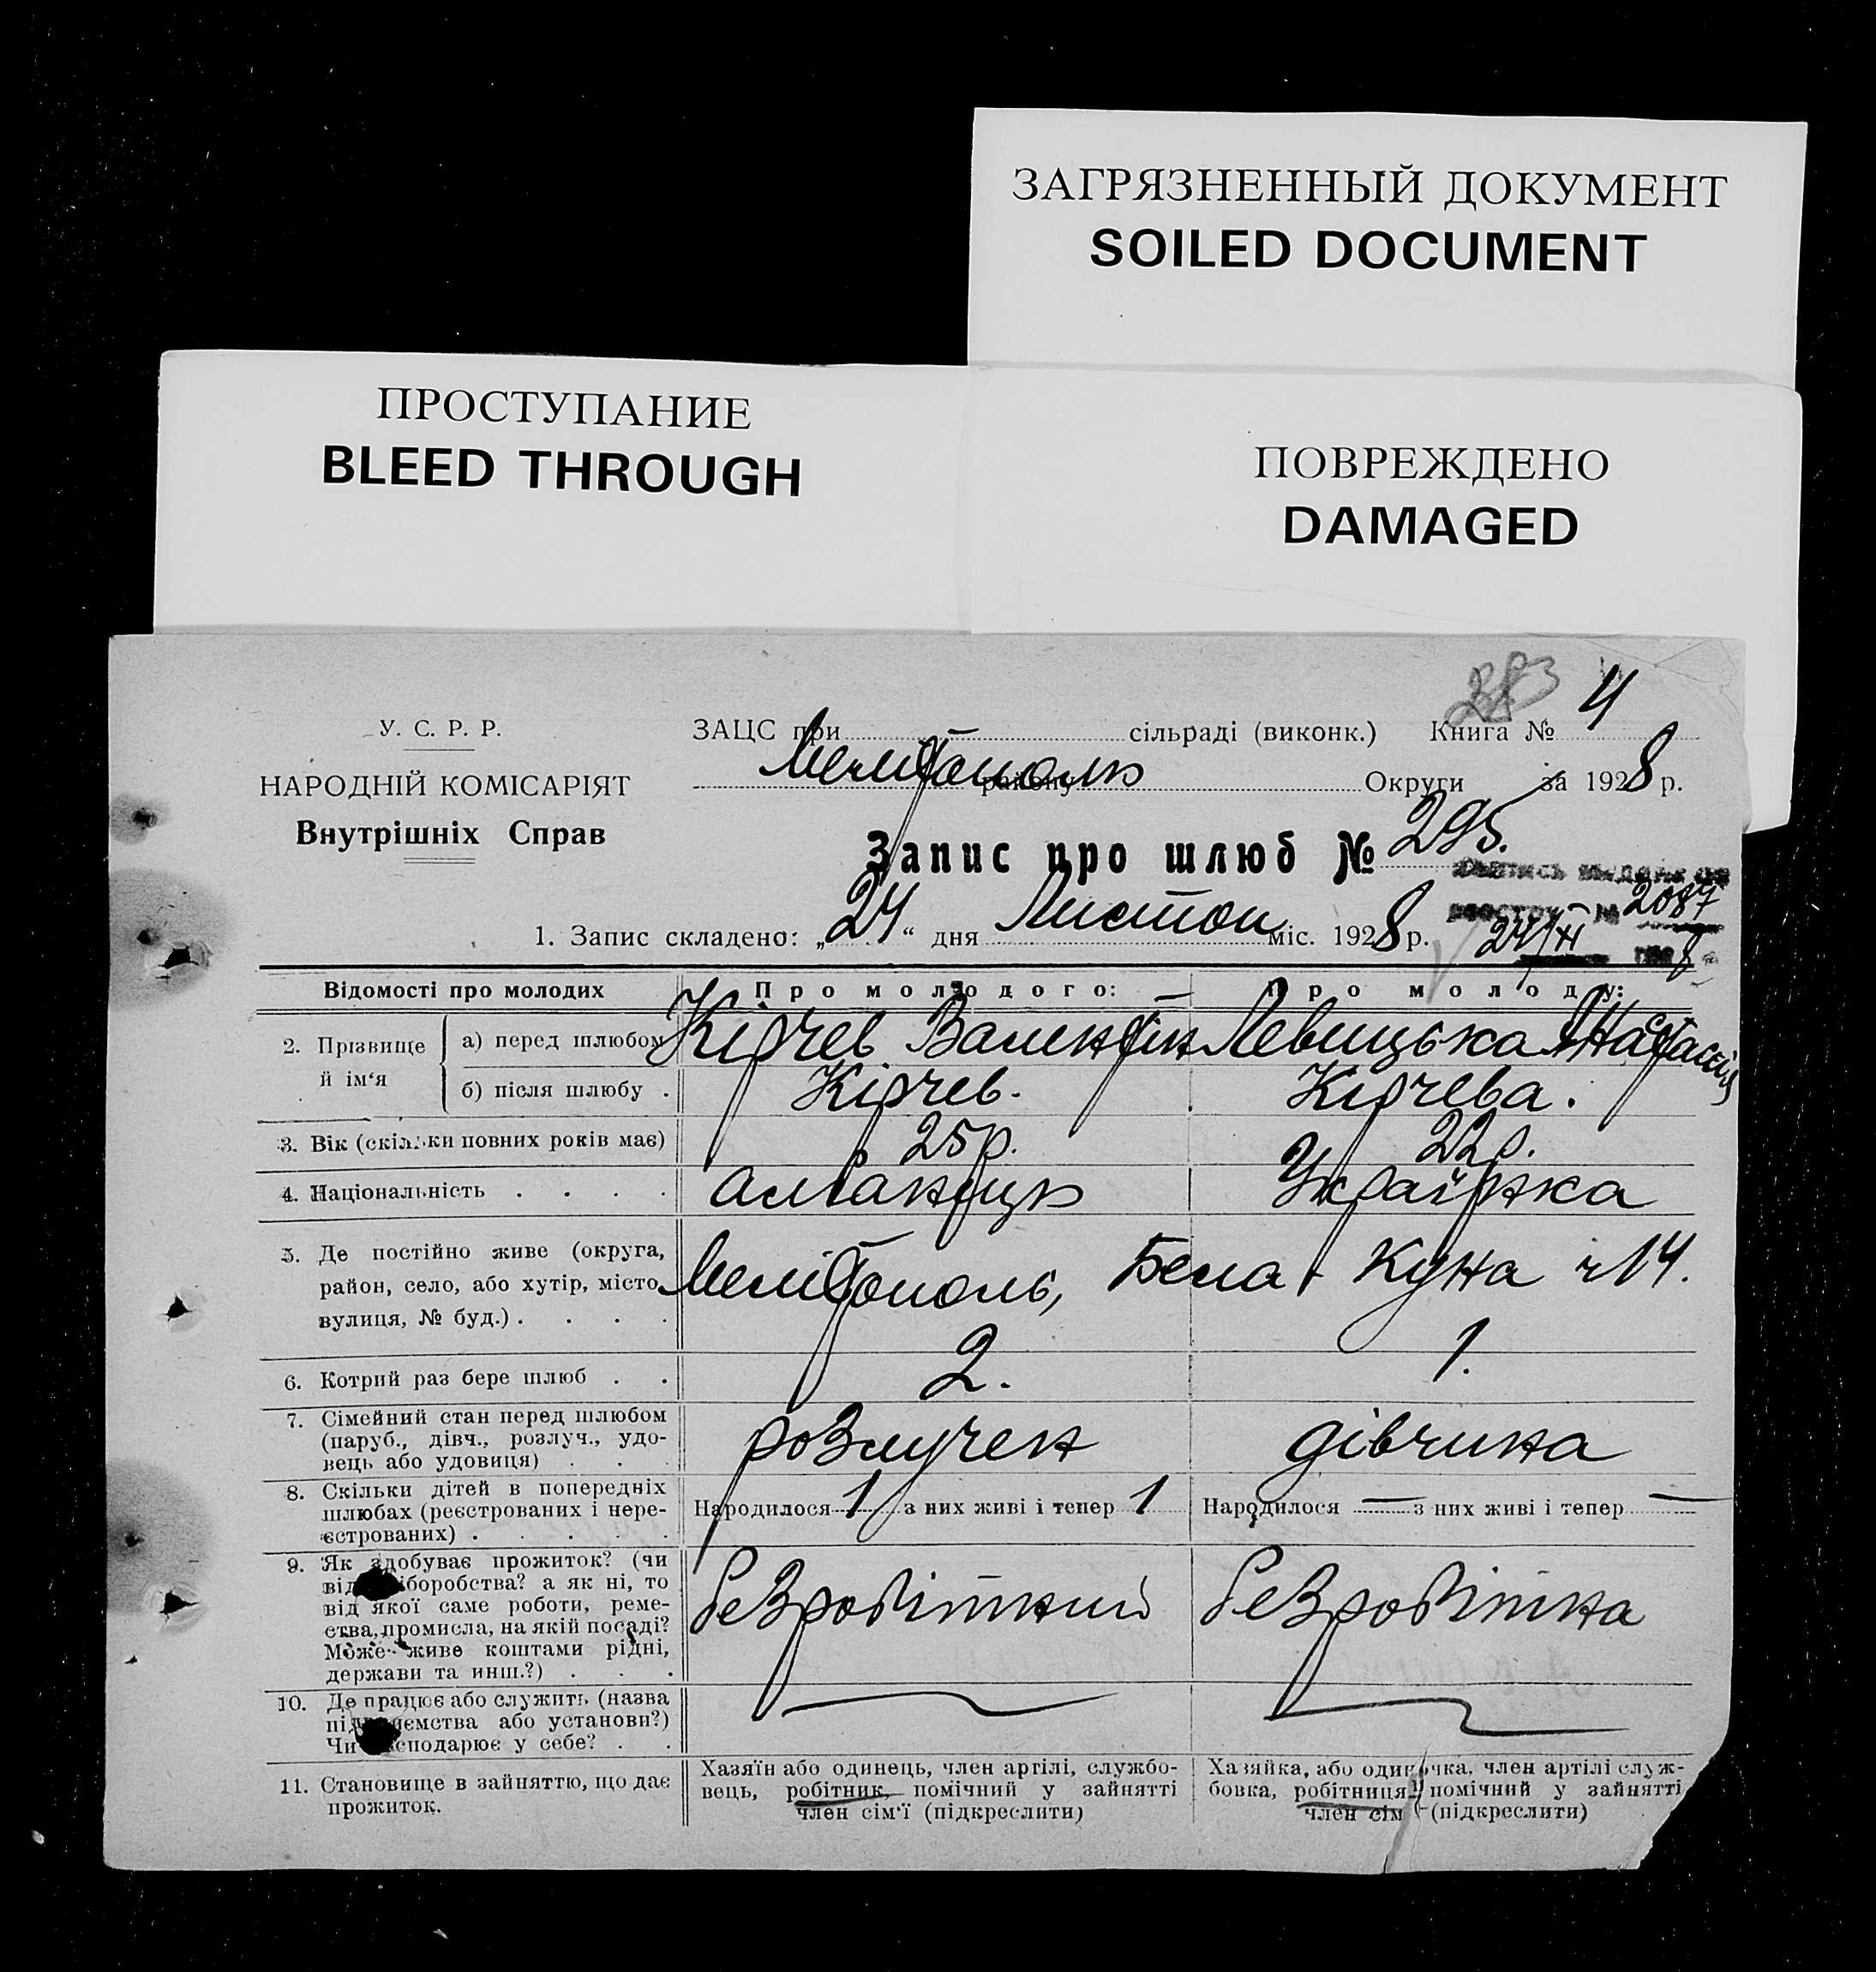 ЗАГРЯЗНЕННЫЙ ДОКУМЕНТ
SOILED DOCUMENT
ПРОСТУПАНИЕ
BLEED THROUGH
ПОВРЕЖДЕНО
DAMAGED
383 4
У. С. Р. Р.
ЗАЦС при сільраді (виконк.) Книга №
НАРОДНІЙ КОМІСАРІЯТ
Мелитополь району Округи за 1928 р.
Внутрішніх Справ
Запис про шлюб № 295.
2087
1. Запис складено: „24“ дня Листоп міс. 1928 р.
24/XI 8
Відомості про молодих Про молодого: Про молоду:
2. Прізвище й ім'я
а) перед шлюбом Кірчев Валентін Левицька Анастасія
б) після шлюбу . Кірчев. Кірчева.
3. Вік (скільки повних років має) 25 р. 22 р.
4. Національність . . . . албанець Українка
5. Де постійно живе (округа,
район, село, або хутір, місто,
вулиця, № буд.) . . . .
Мелітополь, Бела Куна ч 14.
6. Котрий раз бере шлюб . . 2. 1.
7. Сімейний стан перед шлюбом
(паруб., дівч., розлуч., удо-
вець або удовиця) . . .
розлучен дівчина
8. Скільки дітей в попередніх
шлюбах (реєстрованих і нере-
єстрованих) . . . . .
Народилося 1 з них живі і тепер 1 Народилося — з них живі і тепер —
9. Як здобуває прожиток? (чи
від боробства? а як ні, то
від якої саме роботи, реме-
ства, промисла, на якій посаді?
Може живе коштами рідні,
держави та инш.?) . . .
безробітний безробітна
10. Де працює або служить (назва
під ємства або установи?)
Чи сподарює у себе? . .
11. Становище в зайняттю, що дає
прожиток.
Хазяїн або одинець, член артілі, службо-
вець, робітник, помічний у зайнятті
член сім'ї (підкреслити)
Хазяйка, або одиночка, член артілі служ-
бовка, робітниця, помічний у зайнятті
член сім (підкреслити)